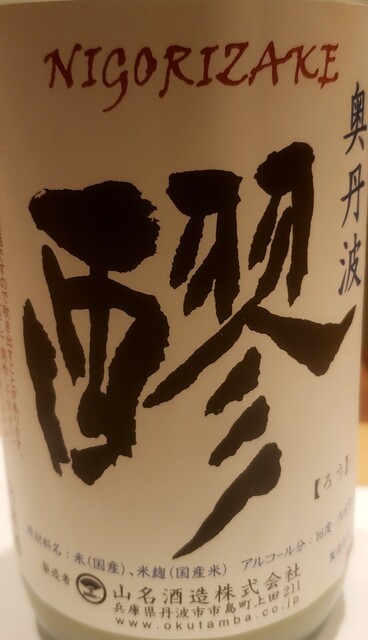 NIGORIZAKE
奥丹波
醪
【ろう】
原材料名：米(国産)、米麹(国産米)
アルコール分：16度
製造者 山名酒造株式会社
兵庫県丹波市市島町上田211
www.okutamba.co.jp